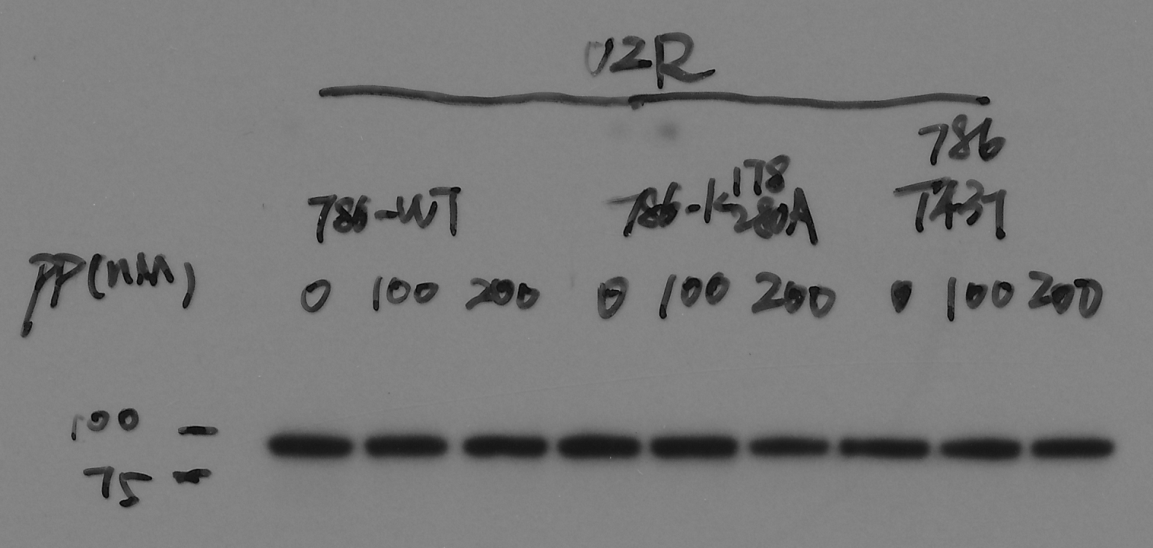 02R
786
786-WT 786-K178 280A T431
PP(nM) 0 100 200 0 100 200 0 100 200
100 -
75 -